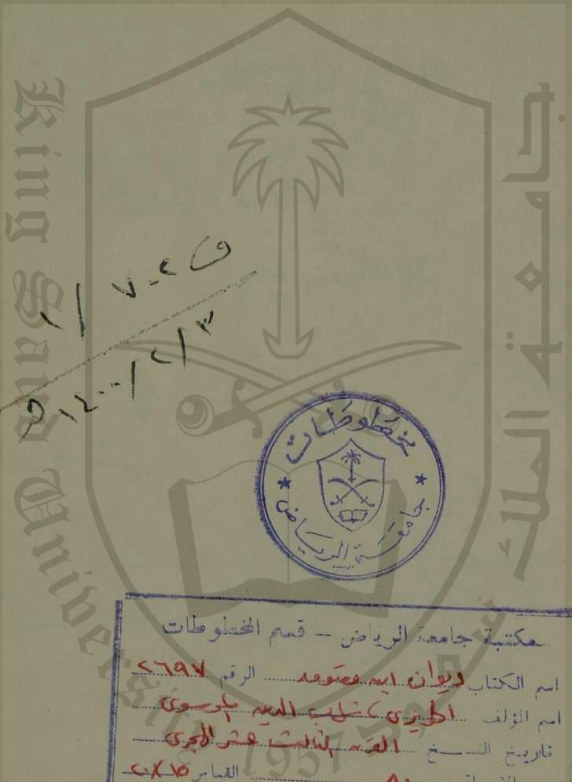 King Saud University
جامعة الملك
1957
ف ٧٠٢ / ١
٣ / ٢ / ١٤٠٠ هـ
مخطوطات
جامعة الرياض
مكتبة جامعة الرياض - قسم المخطوطات
اسم الكتاب ديوان ابن معتوق الرقم ٢٦٩٧
اسم المؤلف شهاب الدين الموسوي
تاريخ النسخ القرن الثالث عشر الهجري
القياس